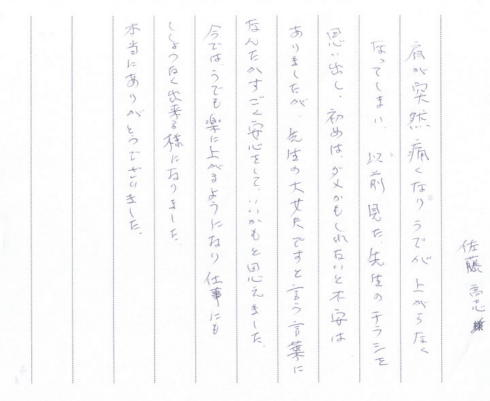 佐藤 高志 様
肩が突然痛くなり うでが 上がらなく
なってしまい、以前見た先生のチラシを
思い出し、初めは、ダメかもしれないと不安は
ありましたが、先生の大丈夫ですと言う言葉に
なんだかすごく安心をして、いいかもと思えました。
今ではうでも楽に上がるようになり 仕事にも
ししょうなく出来る様になりました。
本当にありがとうございました。